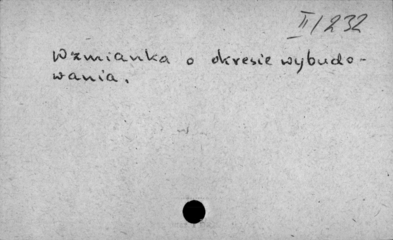 II/232
Wzmianka o okresie wybudo-
wania.